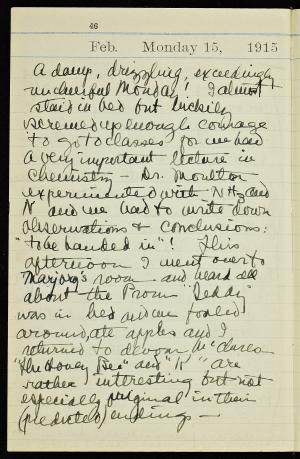 46
Feb. Monday 15, 1915
A damp, drizzling, exceedingly
uncheerful Monday! I almost
staid in bed but luckily
screwed up enough courage
to go to classes for we had
a very important lecture in
Chemistry - Dr. Moulton
experimented with NH3 and
N and we had to write down
observations & conclusions:
"to be handed in"! This
afternoon I went over to
Marjory's room and heard all
about the Prom "Teddy"
was in bed and we fooled
around, ate apples and I
returned to devour
"The Honey Bee" and "It" are
rather interesting but not
especially original in their
(predicted) endings -